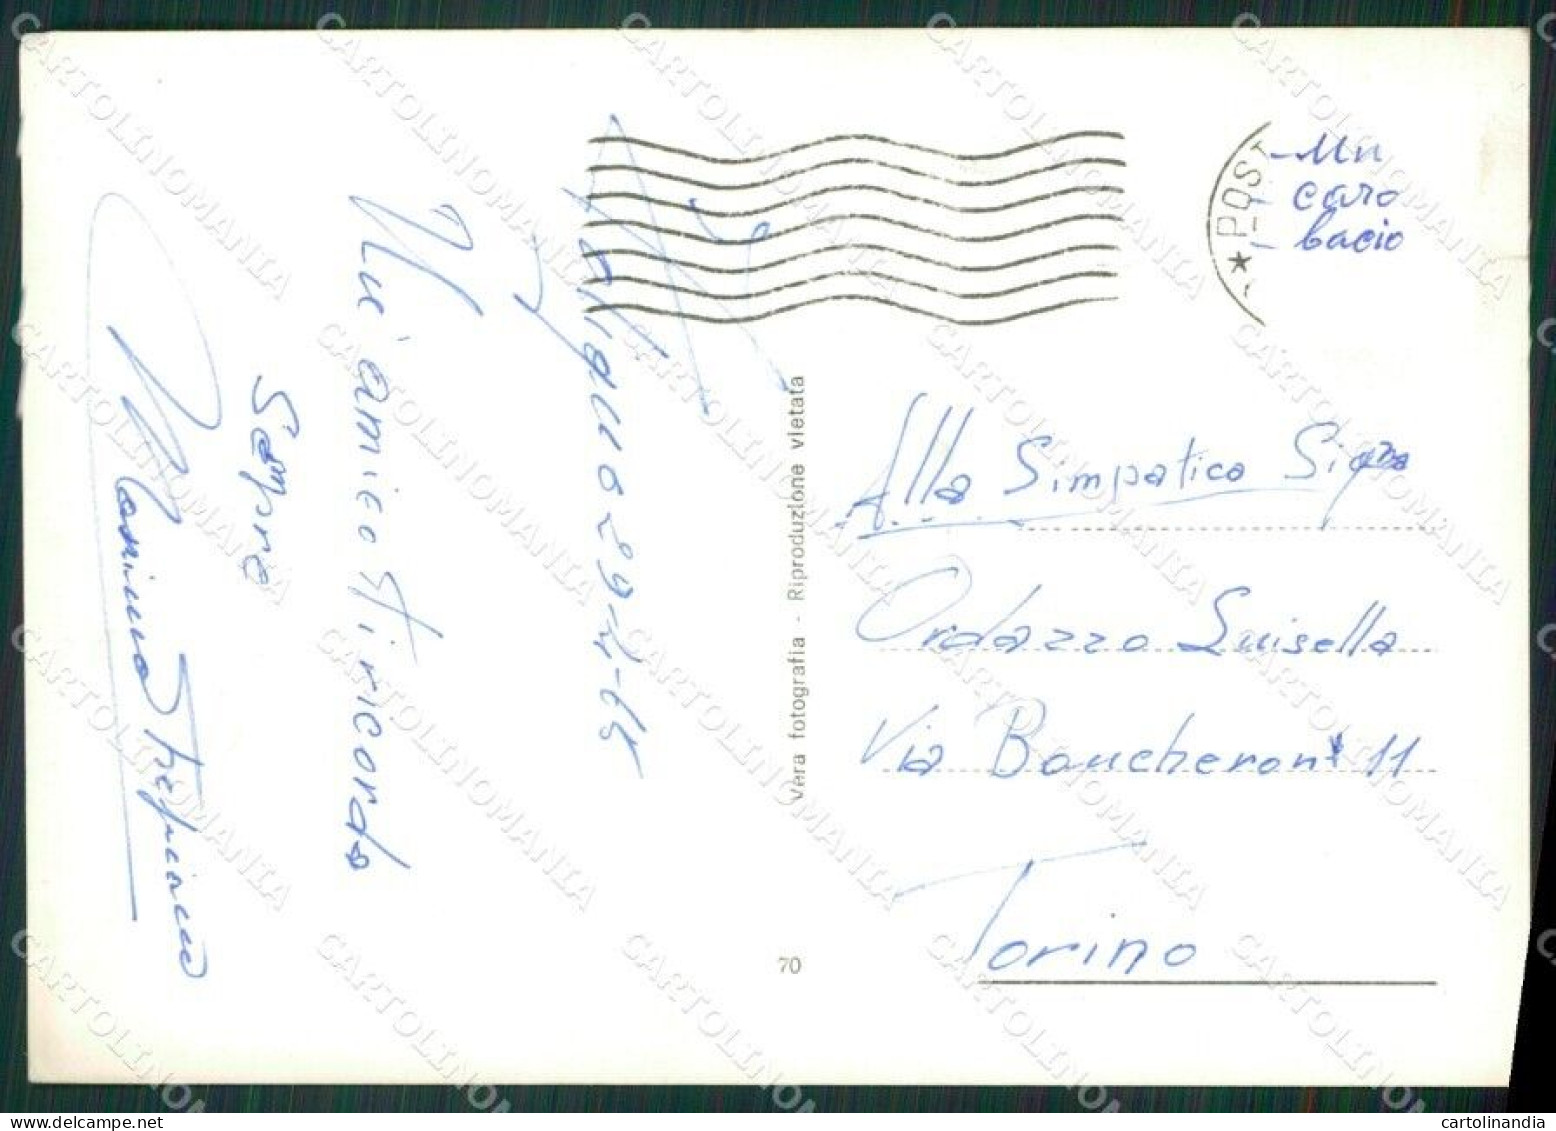 Un
caro
bacio
POST
29-4-65
Un'amico ti ricorda
Sempre
Vera fotografia - Riproduzione vietata
70
Alla Simpatica Sig.na
Ordazzo Luisella
Via Boucheron 11
Torino
CARTOLINOMANIA
cartolinandia